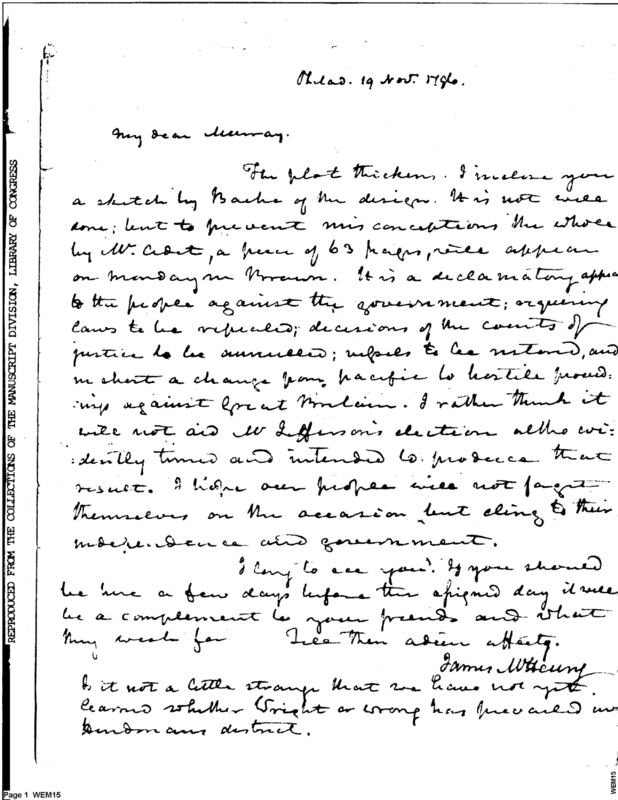 Philad. 19 Nov. 1796.
My dear Murray.
The plot thickens. I inclose you
a sketch by Bache of the design. It is not well
done; but to prevent misconceptions the whole
by Mr. Adet, a piece of 63 pages, will appear
on Monday in Brown. It is a declamatory appea
to the people against the government; requiring
laws to be repealed; decisions of the courts of
justice to be annulled; vessels to be restored, and
in short a change from pacific to hostile proceed:
ings against Great Britain. I rather think it
will not aid Mr Jefferson's election altho evi:
:dently timed and intended to produce that
result. I hope our people will not forget
themselves on the occasion but cling to their
independence and government.
I long to see you. If you should
be here a few days before the assigned day it will
be a complement to your friends and what
they wish for Till then adieu affecty.
James McHenry
Is it not a little strange that we have not yet
learned whether Wright or wrong has prevailed in
Hindmans district.
REPRODUCED FROM THE COLLECTIONS OF THE MANUSCRIPT DIVISION, LIBRARY OF CONGRESS
Page 1 WEM15
WEM15